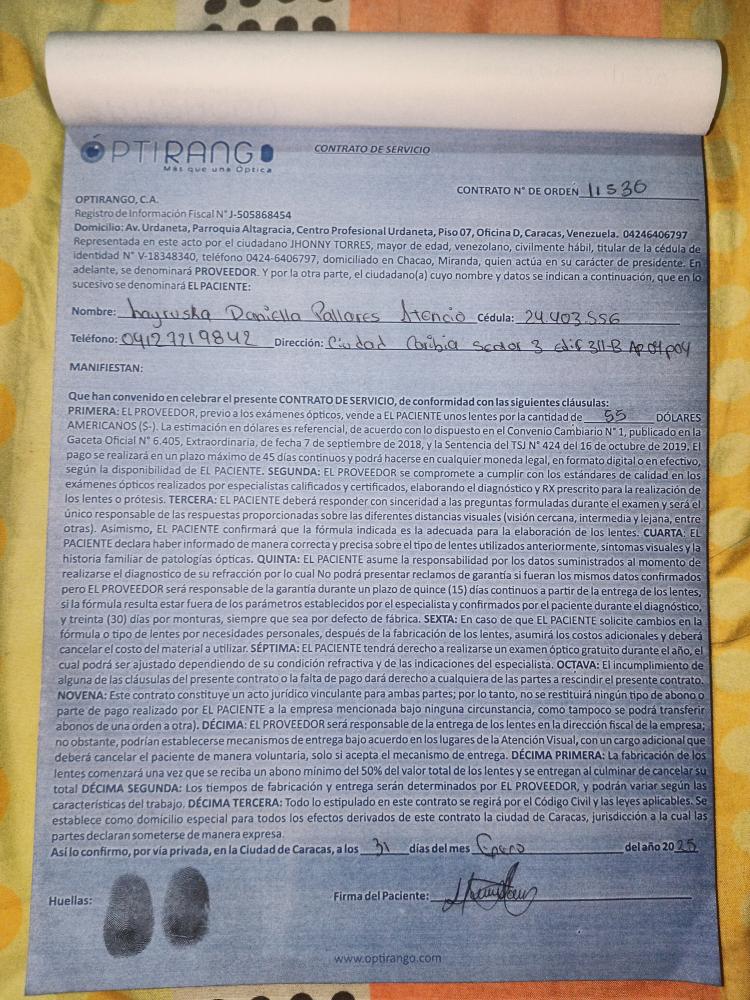 ÓPTIRANGO
Más que una Óptica
CONTRATO DE SERVICIO
CONTRATO N° DE ORDEN 11530
OPTIRANGO, C.A.
Registro de Información Fiscal N° J-505868454
Domicilio: Av. Urdaneta, Parroquia Altagracia, Centro Profesional Urdaneta, Piso 07, Oficina D, Caracas, Venezuela. 04246406797
Representada en este acto por el ciudadano JHONNY TORRES, mayor de edad, venezolano, civilmente hábil, titular de la cédula de
identidad N° V-18348340, teléfono 0424-6406797, domiciliado en Chacao, Miranda, quien actúa en su carácter de presidente. En
adelante, se denominará PROVEEDOR. Y por la otra parte, el ciudadano(a) cuyo nombre y datos se indican a continuación, que en lo
sucesivo se denominará EL PACIENTE:
Nombre: Daniella Pallares Atencio Cédula: 24.403.556
Teléfono: 04127219842 Dirección: Ciudad Caribia Sector 3 edif 311-B Ap 04 p04
MANIFIESTAN:
Que han convenido en celebrar el presente CONTRATO DE SERVICIO, de conformidad con las siguientes cláusulas:
PRIMERA: EL PROVEEDOR, previo a los exámenes ópticos, vende a EL PACIENTE unos lentes por la cantidad de 55 DÓLARES
AMERICANOS ($-). La estimación en dólares es referencial, de acuerdo con lo dispuesto en el Convenio Cambiario N° 1, publicado en la
Gaceta Oficial N° 6.405, Extraordinaria, de fecha 7 de septiembre de 2018, y la Sentencia del TSJ N° 424 del 16 de octubre de 2019. El
pago se realizará en un plazo máximo de 45 días continuos y podrá hacerse en cualquier moneda legal, en formato digital o en efectivo,
según la disponibilidad de EL PACIENTE. SEGUNDA: EL PROVEEDOR se compromete a cumplir con los estándares de calidad en los
exámenes ópticos realizados por especialistas calificados y certificados, elaborando el diagnóstico y RX prescrito para la realización de
los lentes o prótesis. TERCERA: EL PACIENTE deberá responder con sinceridad a las preguntas formuladas durante el examen y será el
único responsable de las respuestas proporcionadas sobre las diferentes distancias visuales (visión cercana, intermedia y lejana, entre
otras). Asimismo, EL PACIENTE confirmará que la fórmula indicada es la adecuada para la elaboración de los lentes. CUARTA: EL
PACIENTE declara haber informado de manera correcta y precisa sobre el tipo de lentes utilizados anteriormente, síntomas visuales y la
historia familiar de patologías ópticas. QUINTA: EL PACIENTE asume la responsabilidad por los datos suministrados al momento de
realizarse el diagnostico de su refracción por lo cual No podrá presentar reclamos de garantía si fueran los mismos datos confirmados
pero EL PROVEEDOR será responsable de la garantía durante un plazo de quince (15) días continuos a partir de la entrega de los lentes,
si la fórmula resulta estar fuera de los parámetros establecidos por el especialista y confirmados por el paciente durante el diagnóstico,
y treinta (30) días por monturas, siempre que sea por defecto de fábrica. SEXTA: En caso de que EL PACIENTE solicite cambios en la
fórmula o tipo de lentes por necesidades personales, después de la fabricación de los lentes, asumirá los costos adicionales y deberá
cancelar el costo del material a utilizar. SÉPTIMA: EL PACIENTE tendrá derecho a realizarse un examen óptico gratuito durante el año, el
cual podrá ser ajustado dependiendo de su condición refractiva y de las indicaciones del especialista. OCTAVA: El incumplimiento de
alguna de las cláusulas del presente contrato o la falta de pago dará derecho a cualquiera de las partes a rescindir el presente contrato.
NOVENA: Este contrato constituye un acto jurídico vinculante para ambas partes; por lo tanto, no se restituirá ningún tipo de abono o
parte de pago realizado por EL PACIENTE a la empresa mencionada bajo ninguna circunstancia, como tampoco se podrá transferir
abonos de una orden a otra). DÉCIMA: EL PROVEEDOR será responsable de la entrega de los lentes en la dirección fiscal de la empresa;
no obstante, podrían establecerse mecanismos de entrega bajo acuerdo en los lugares de la Atención Visual, con un cargo adicional que
deberá cancelar el paciente de manera voluntaria, solo si acepta el mecanismo de entrega. DÉCIMA PRIMERA: La fabricación de los
lentes comenzará una vez que se reciba un abono mínimo del 50% del valor total de los lentes y se entregan al culminar de cancelar su
total DÉCIMA SEGUNDA: Los tiempos de fabricación y entrega serán determinados por EL PROVEEDOR, y podrán variar según las
características del trabajo. DÉCIMA TERCERA: Todo lo estipulado en este contrato se regirá por el Código Civil y las leyes aplicables. Se
establece como domicilio especial para todos los efectos derivados de este contrato la ciudad de Caracas, jurisdicción a la cual las
partes declaran someterse de manera expresa.
Así lo confirmo, por vía privada, en la Ciudad de Caracas, a los 31 días del mes Enero del año 2025
Huellas:
Firma del Paciente:
www.optirango.com